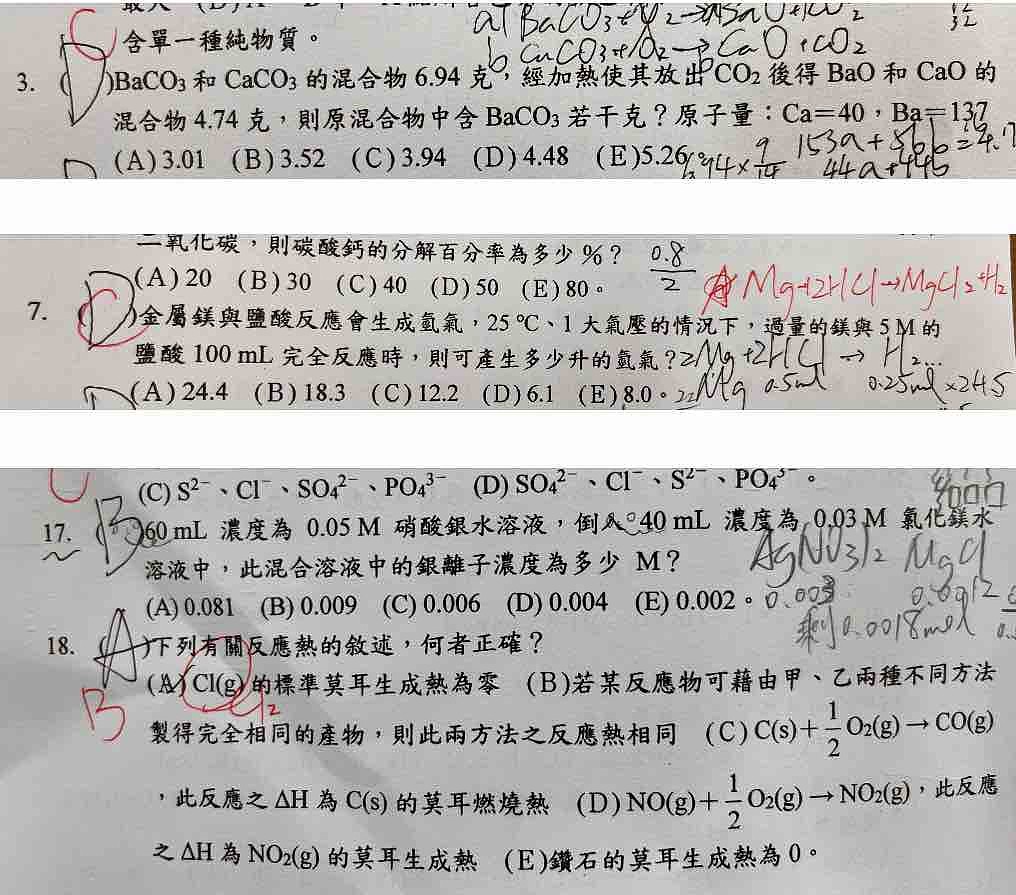 含單一種純物質。
a BaCO3
b CaCO3 → CaO + CO2
3. (D)BaCO3 和 CaCO3 的混合物 6.94 克,經加熱使其放出 CO2 後得 BaO 和 CaO 的
混合物 4.74 克,則原混合物中含 BaCO3 若干克?原子量:Ca=40,Ba=137
(A) 3.01 (B) 3.52 (C) 3.94 (D) 4.48 (E) 5.26
153a+56b=4.7
44a+44b
二氧化碳,則碳酸鈣的分解百分率為多少 %? 0.8/2
(A) 20 (B) 30 (C) 40 (D) 50 (E) 80。
Mg+2HCl→MgCl2+H2
7. (D)金屬鎂與鹽酸反應會生成氫氣,25 ℃、1 大氣壓的情況下,過量的鎂與 5 M 的
鹽酸 100 mL 完全反應時,則可產生多少升的氫氣?
Mg+2HCl → H2...
(A) 24.4 (B) 18.3 (C) 12.2 (D) 6.1 (E) 8.0。 Mg 0.5ml 0.25ml×24.5
(C) S²⁻、Cl⁻、SO4²⁻、PO4³⁻ (D) SO4²⁻、Cl⁻、S²⁻、PO4³⁻。
17. (B)60 mL 濃度為 0.05 M 硝酸銀水溶液,倒入 40 mL 濃度為 0.03 M 氯化鎂水
溶液中,此混合溶液中的銀離子濃度為多少 M?
AgNO3)2 MgCl
(A) 0.081 (B) 0.009 (C) 0.006 (D) 0.004 (E) 0.002。 0.003 0.0012
剩0.0018mol
18. (A)下列有關反應熱的敘述,何者正確?
B
(A) Cl(g) 的標準莫耳生成熱為零 (B)若某反應物可藉由甲、乙兩種不同方法
Cl2
製得完全相同的產物,則此兩方法之反應熱相同 (C) C(s)+1/2 O2(g)→CO(g)
,此反應之 ΔH 為 C(s) 的莫耳燃燒熱 (D) NO(g)+1/2 O2(g)→NO2(g),此反應
之 ΔH 為 NO2(g) 的莫耳生成熱 (E)鑽石的莫耳生成熱為 0。